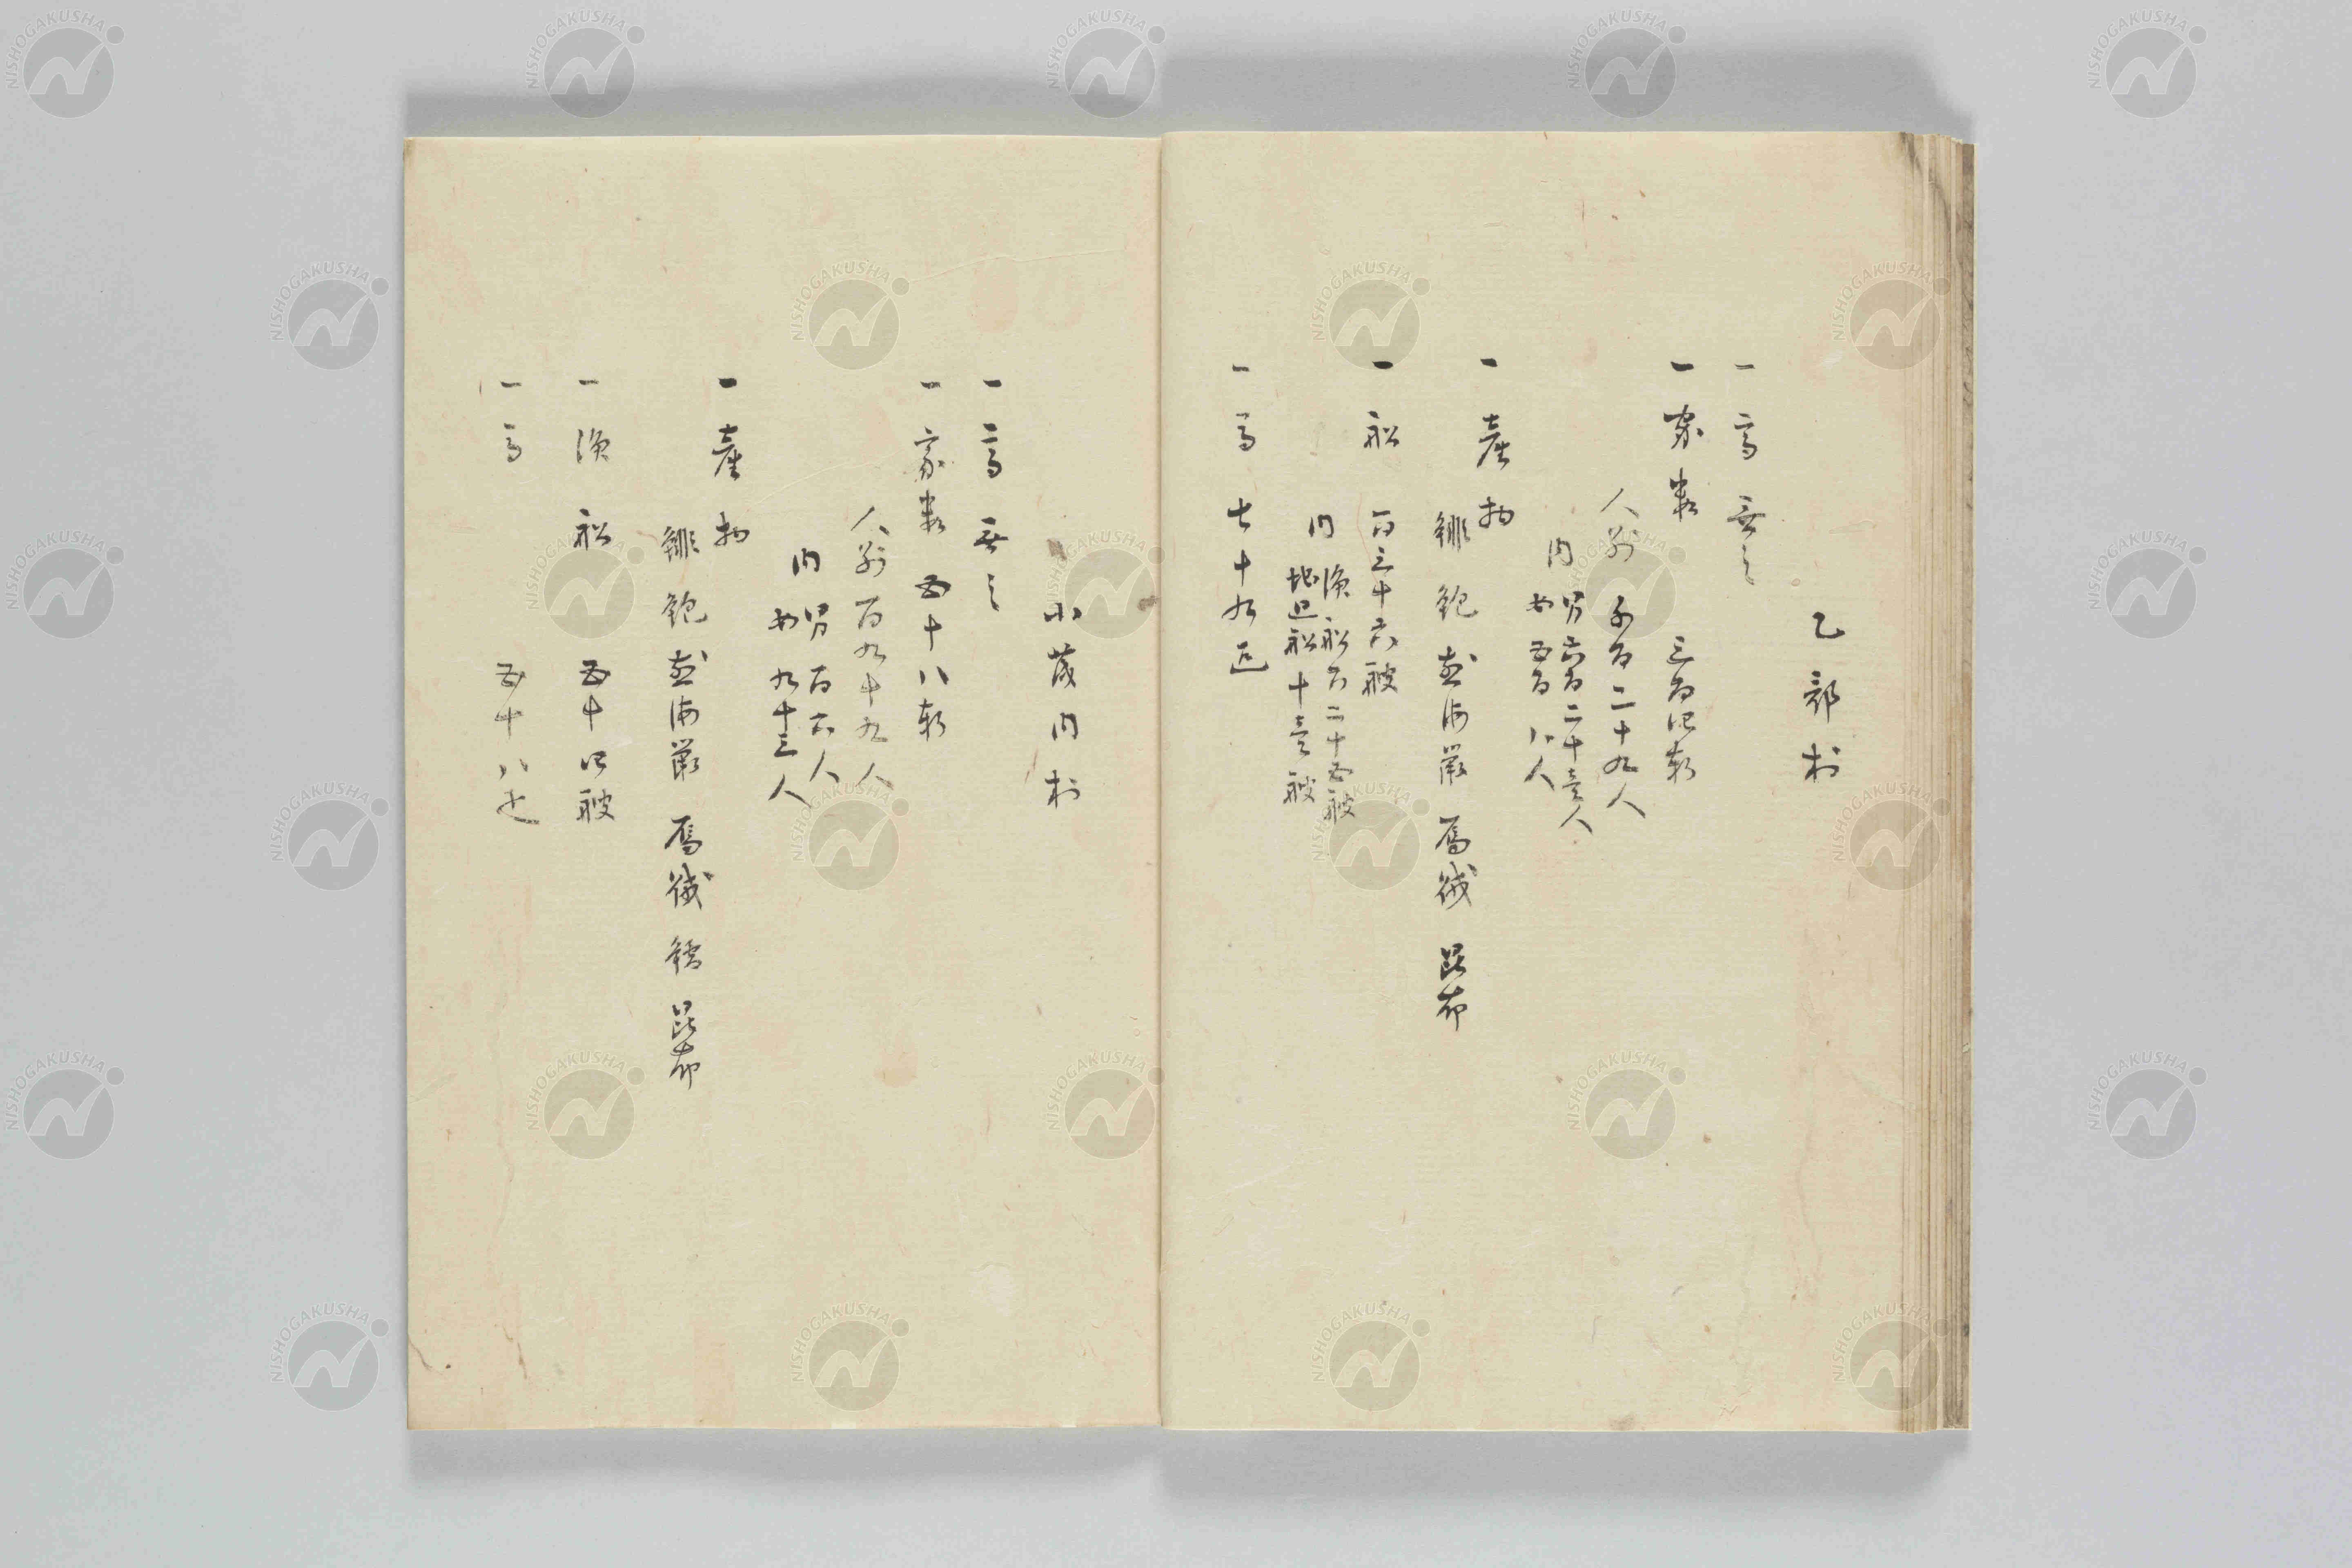 乙部村
一 高 無之
一 家数 三百四軒
人別 千百二十九人
内 男 六百二十壱人
女 五百八人
一 産物
鯡 鮑 煎海鼠 馬鐵 昆布
一 船 百三十六艘
内 漁船百二十五艘
地廻船十壱艘
一 馬 七十九疋
小茂内村
一 高 無之
一 家数 五十八軒
人別 百九十九人
内 男 百六人
女 九十三人
一 産物
鯡 鮑 煎海鼠 鱈 昆布
一 漁船 五十四艘
一 馬 五十八疋
NISHOGAKUSHA